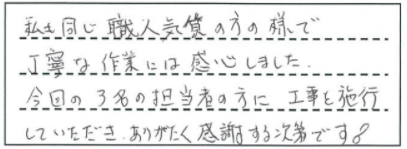 私も同じ職人気質の方の様で
丁寧な作業には感心しました.
今回の3名の担当者の方に 工事を施行
していただき.ありがたく感謝する次第です。